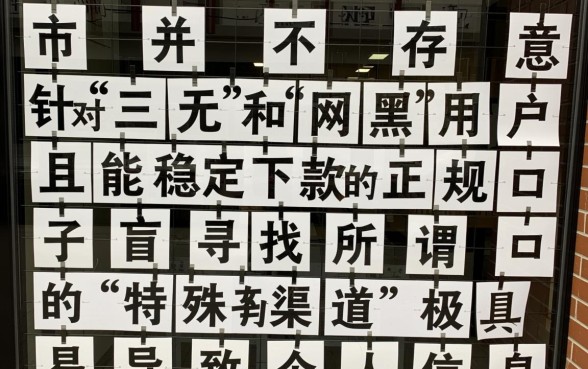 市并不存意
针对“三无”和“网黑”用户
且能稳定下款的正规口
子盲寻找所谓口
的“特殊渠道”极具
易导致个人信息